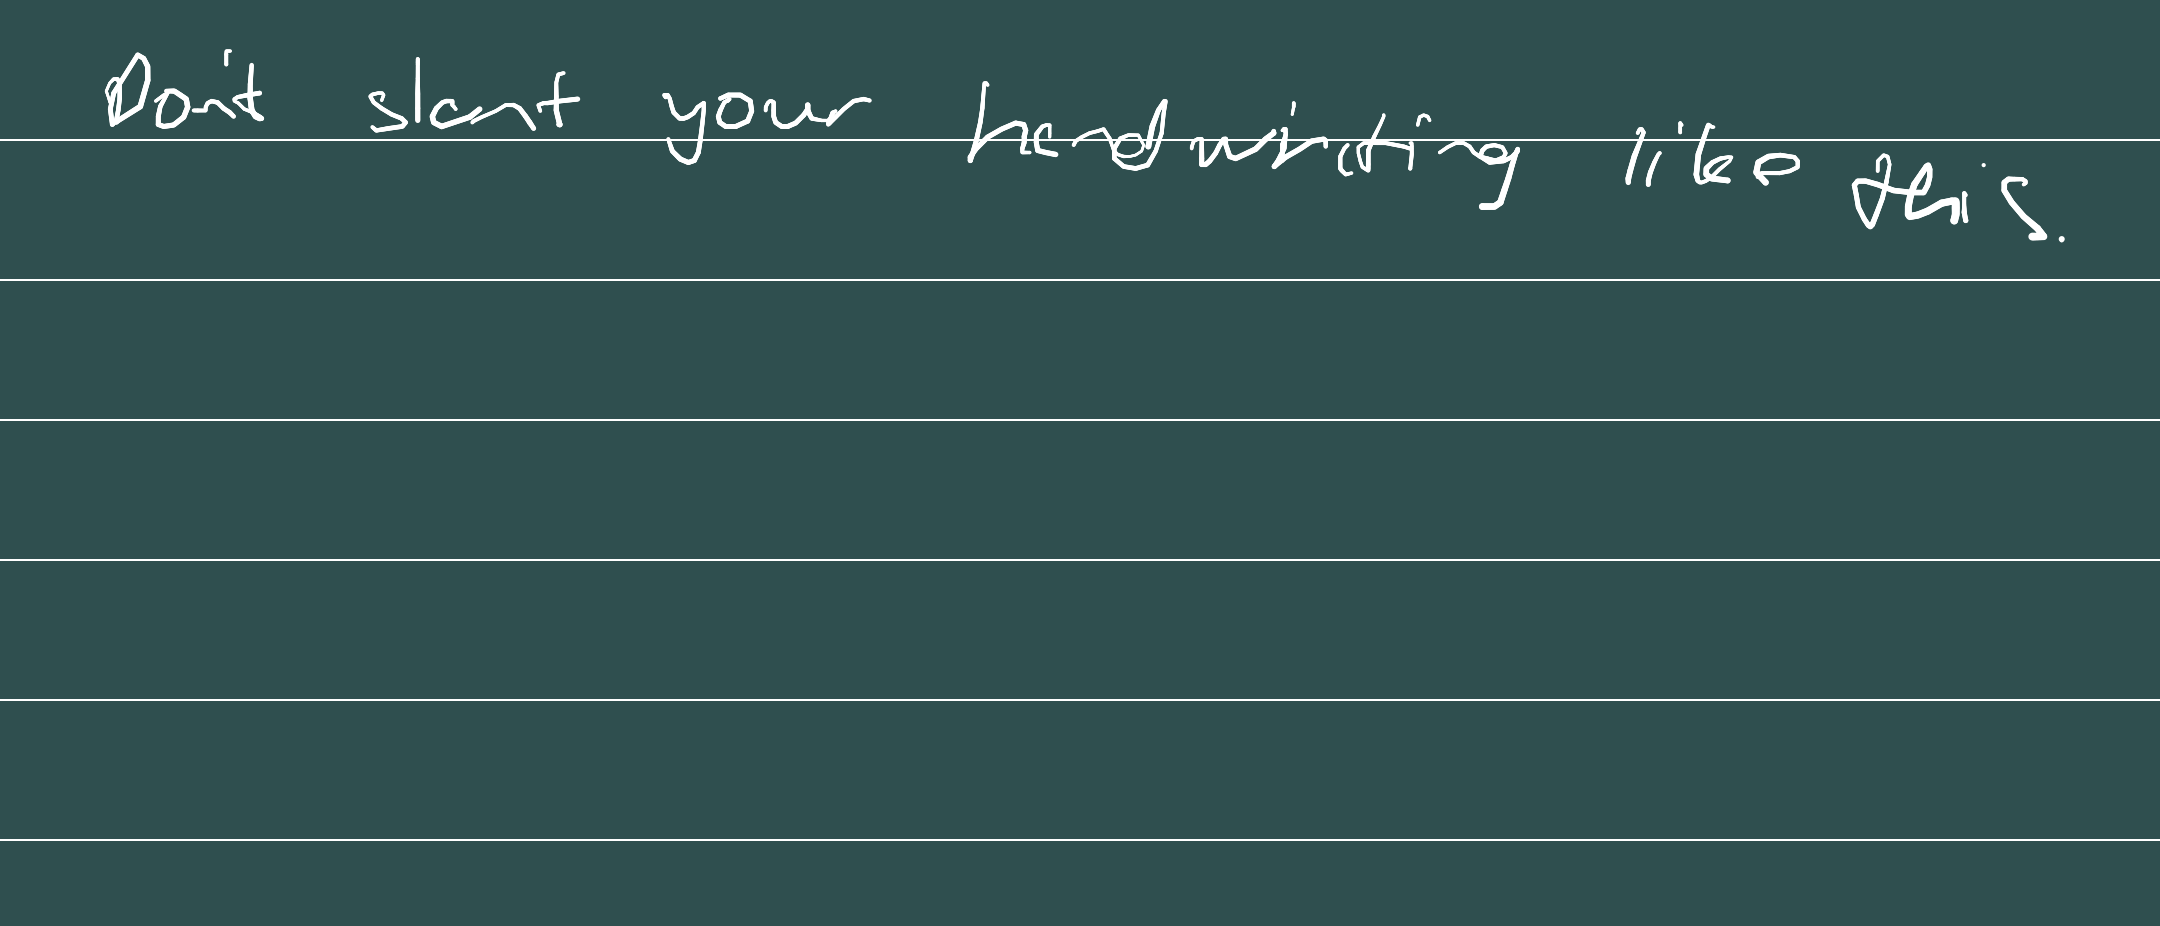 Don't slant your handwriting like this.